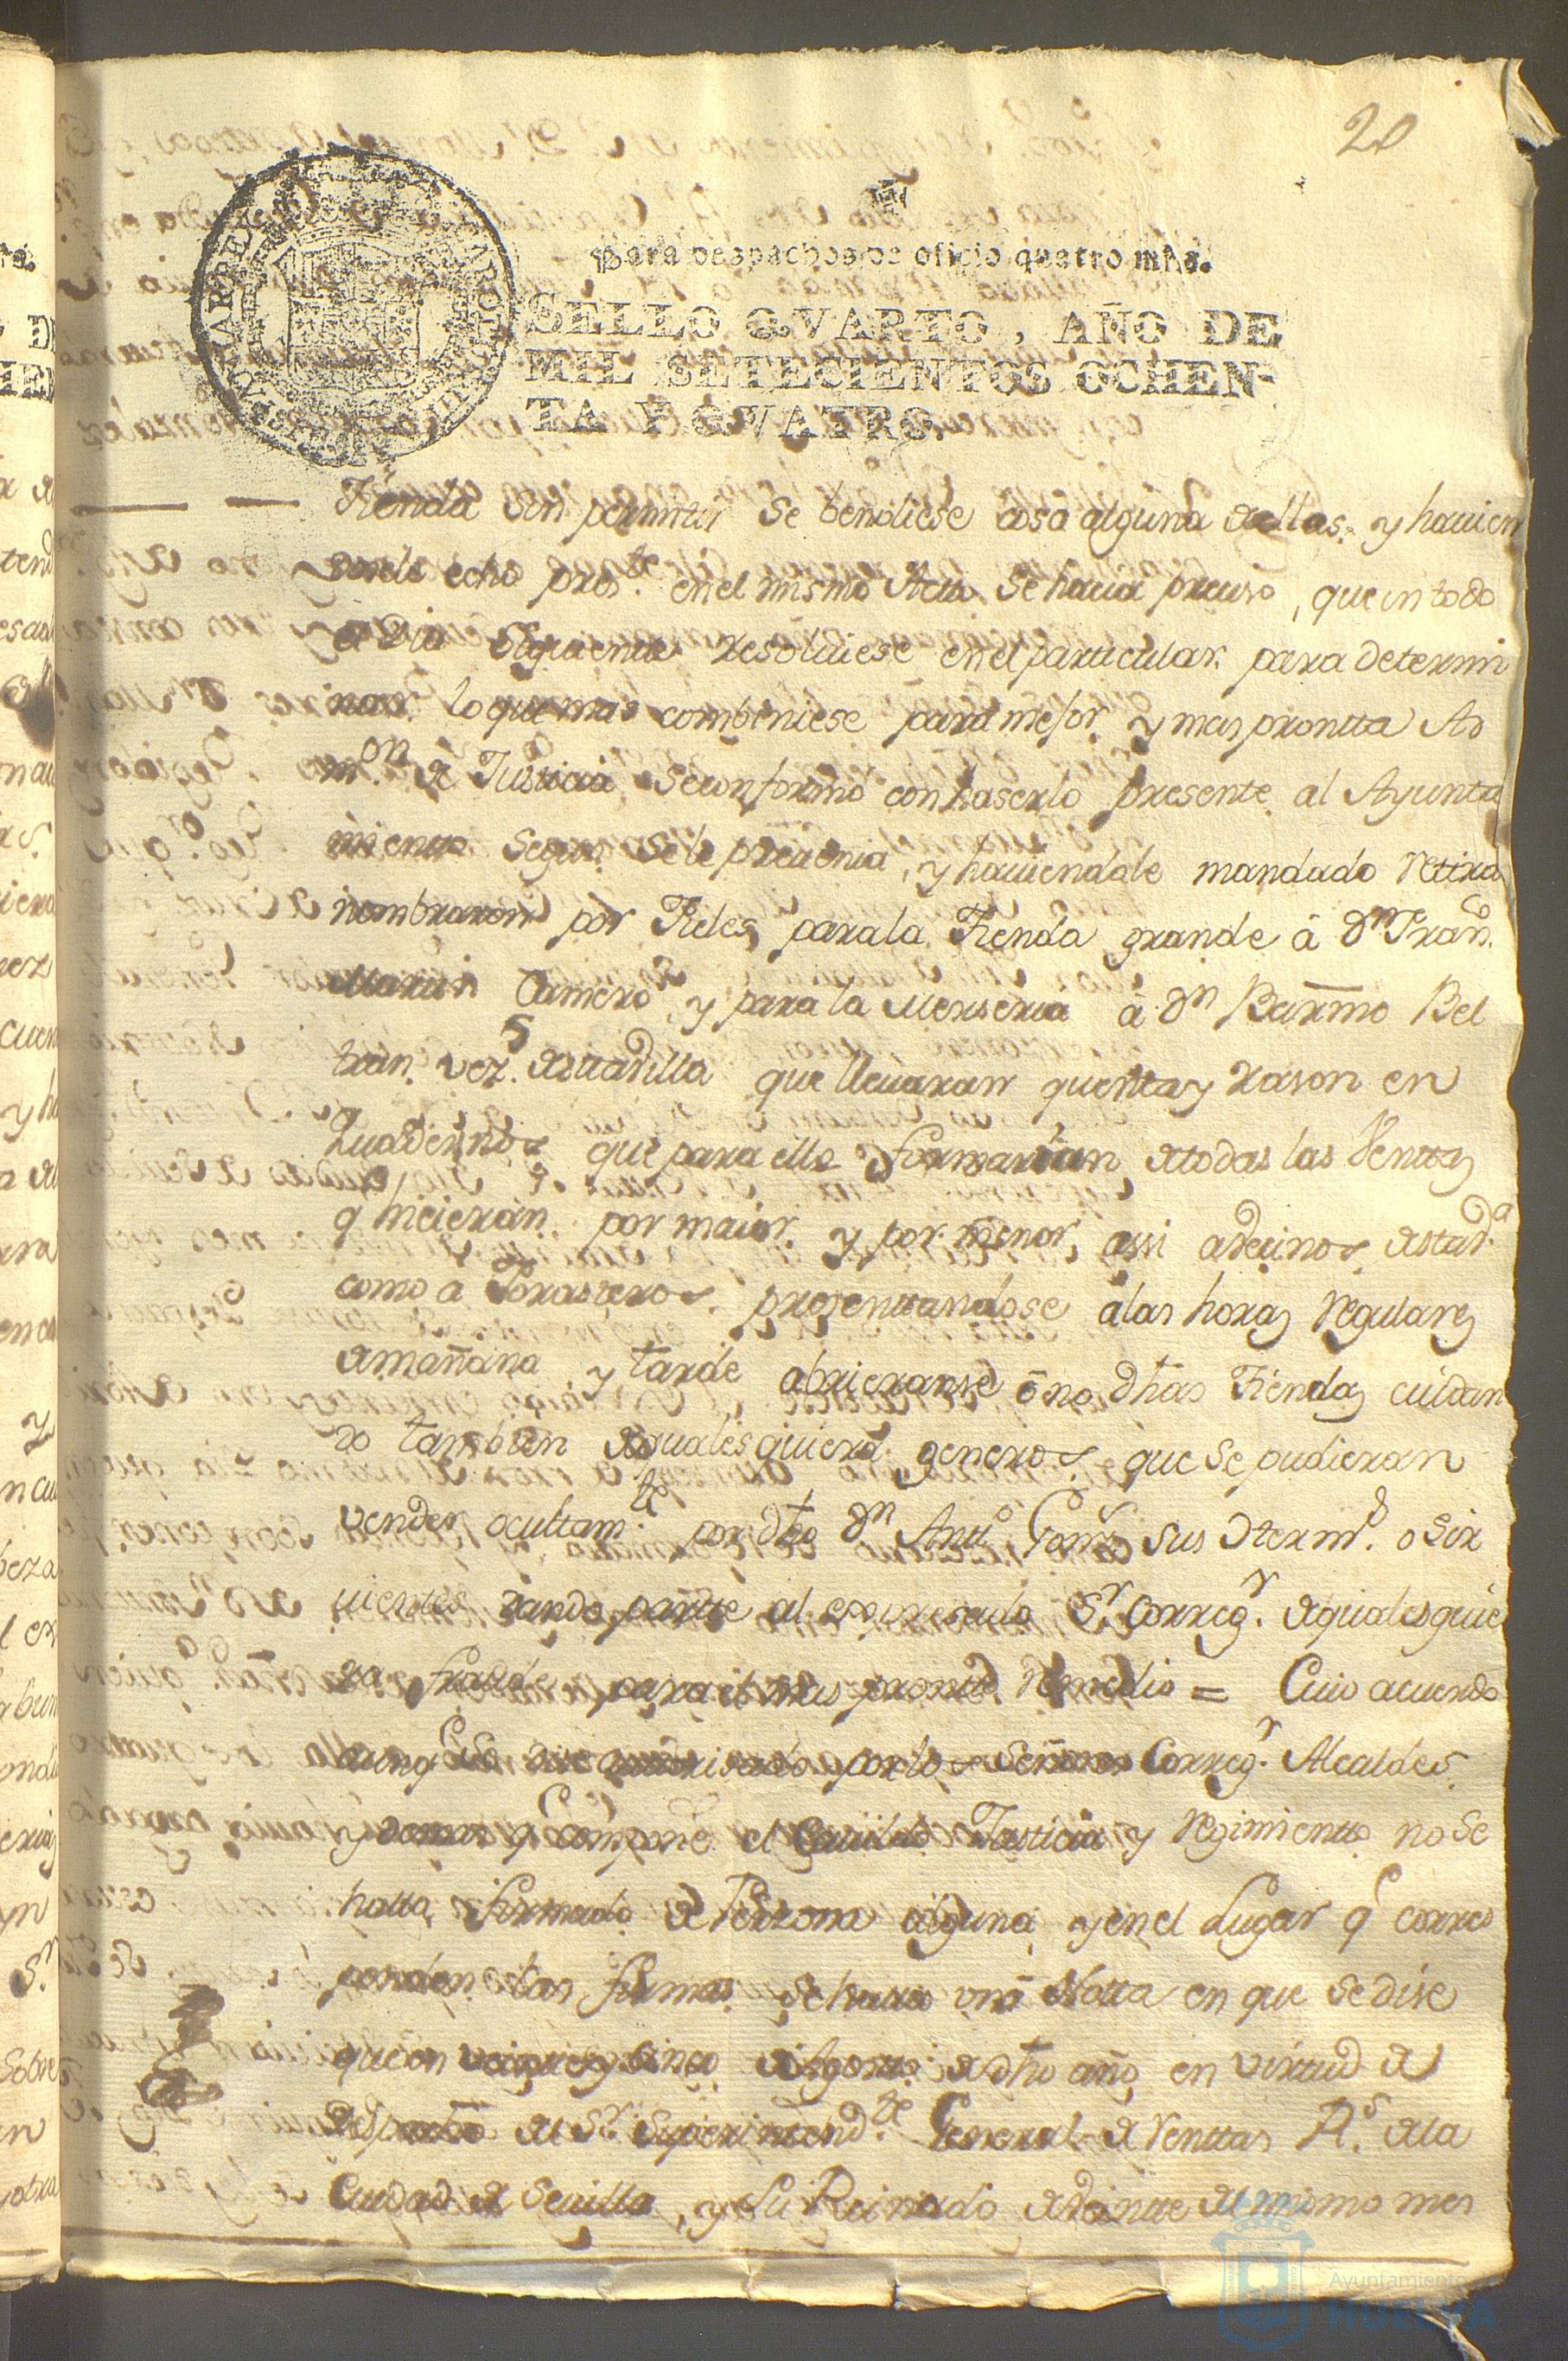 20
Para despachos de oficio quatro mrs.
SELLO QVARTO, AÑO DE
MIL SETECIENTOS OCHEN-
TA Y QVATRO.
Tienda sin permitir se bendiese cosa alguna dellas, y havien
dosele echo pres.te en el mismo Acto se hacia preciso, que en todo
el Dia siguiente resolviese en el particular para determi
nar lo que mas combiniese para mejor y mas prontta Ad
m.on de Justicia, se conformo con haserlo presente al Ayunta
miento segun se le prevenia, y haviendole mandado retira
nombraron por Fieles para la Tienda grande â Dn Fran.co
Martin Camero, y para la Merseria â Dn Barmo Bel
tran vez.s desttadilla que llevaran quenta y rason en
Quadernos que para ello formarian de todas las Venttas
q hicieran por maior y por menor, assi a vecinos destad.a
como a Forasteros presenttandose a las horas regulares
de mañana y tarde abrieranse ô no dhas Tiendas cuidan
do tambien de qualesquiera generos que se pudieran
vender ocultam.te por dho Dn Antt.o Gomz sus Sir
vientes dando partte al expresado Sr Correg.r de qualesquie
ra fraude para el mas prontto remedio = Cuio acuerdo
aunq por los Señores Correg.r Alcaldes
y demas q compone el Cavildo Justicia y regimientto no se
halla firmado de Perzona alguna y en el Lugar q corres
ponden las firmas se halla una Notta en que se dise
que en veinte y cinco de Agosto de dho año en virtud de
Despacho del Sr. Superintend.te General de Renttas R.s de la
Ciudad de Sevilla, y su Reinado de veinte del mismo mes
Ayuntamiento
HUELVA